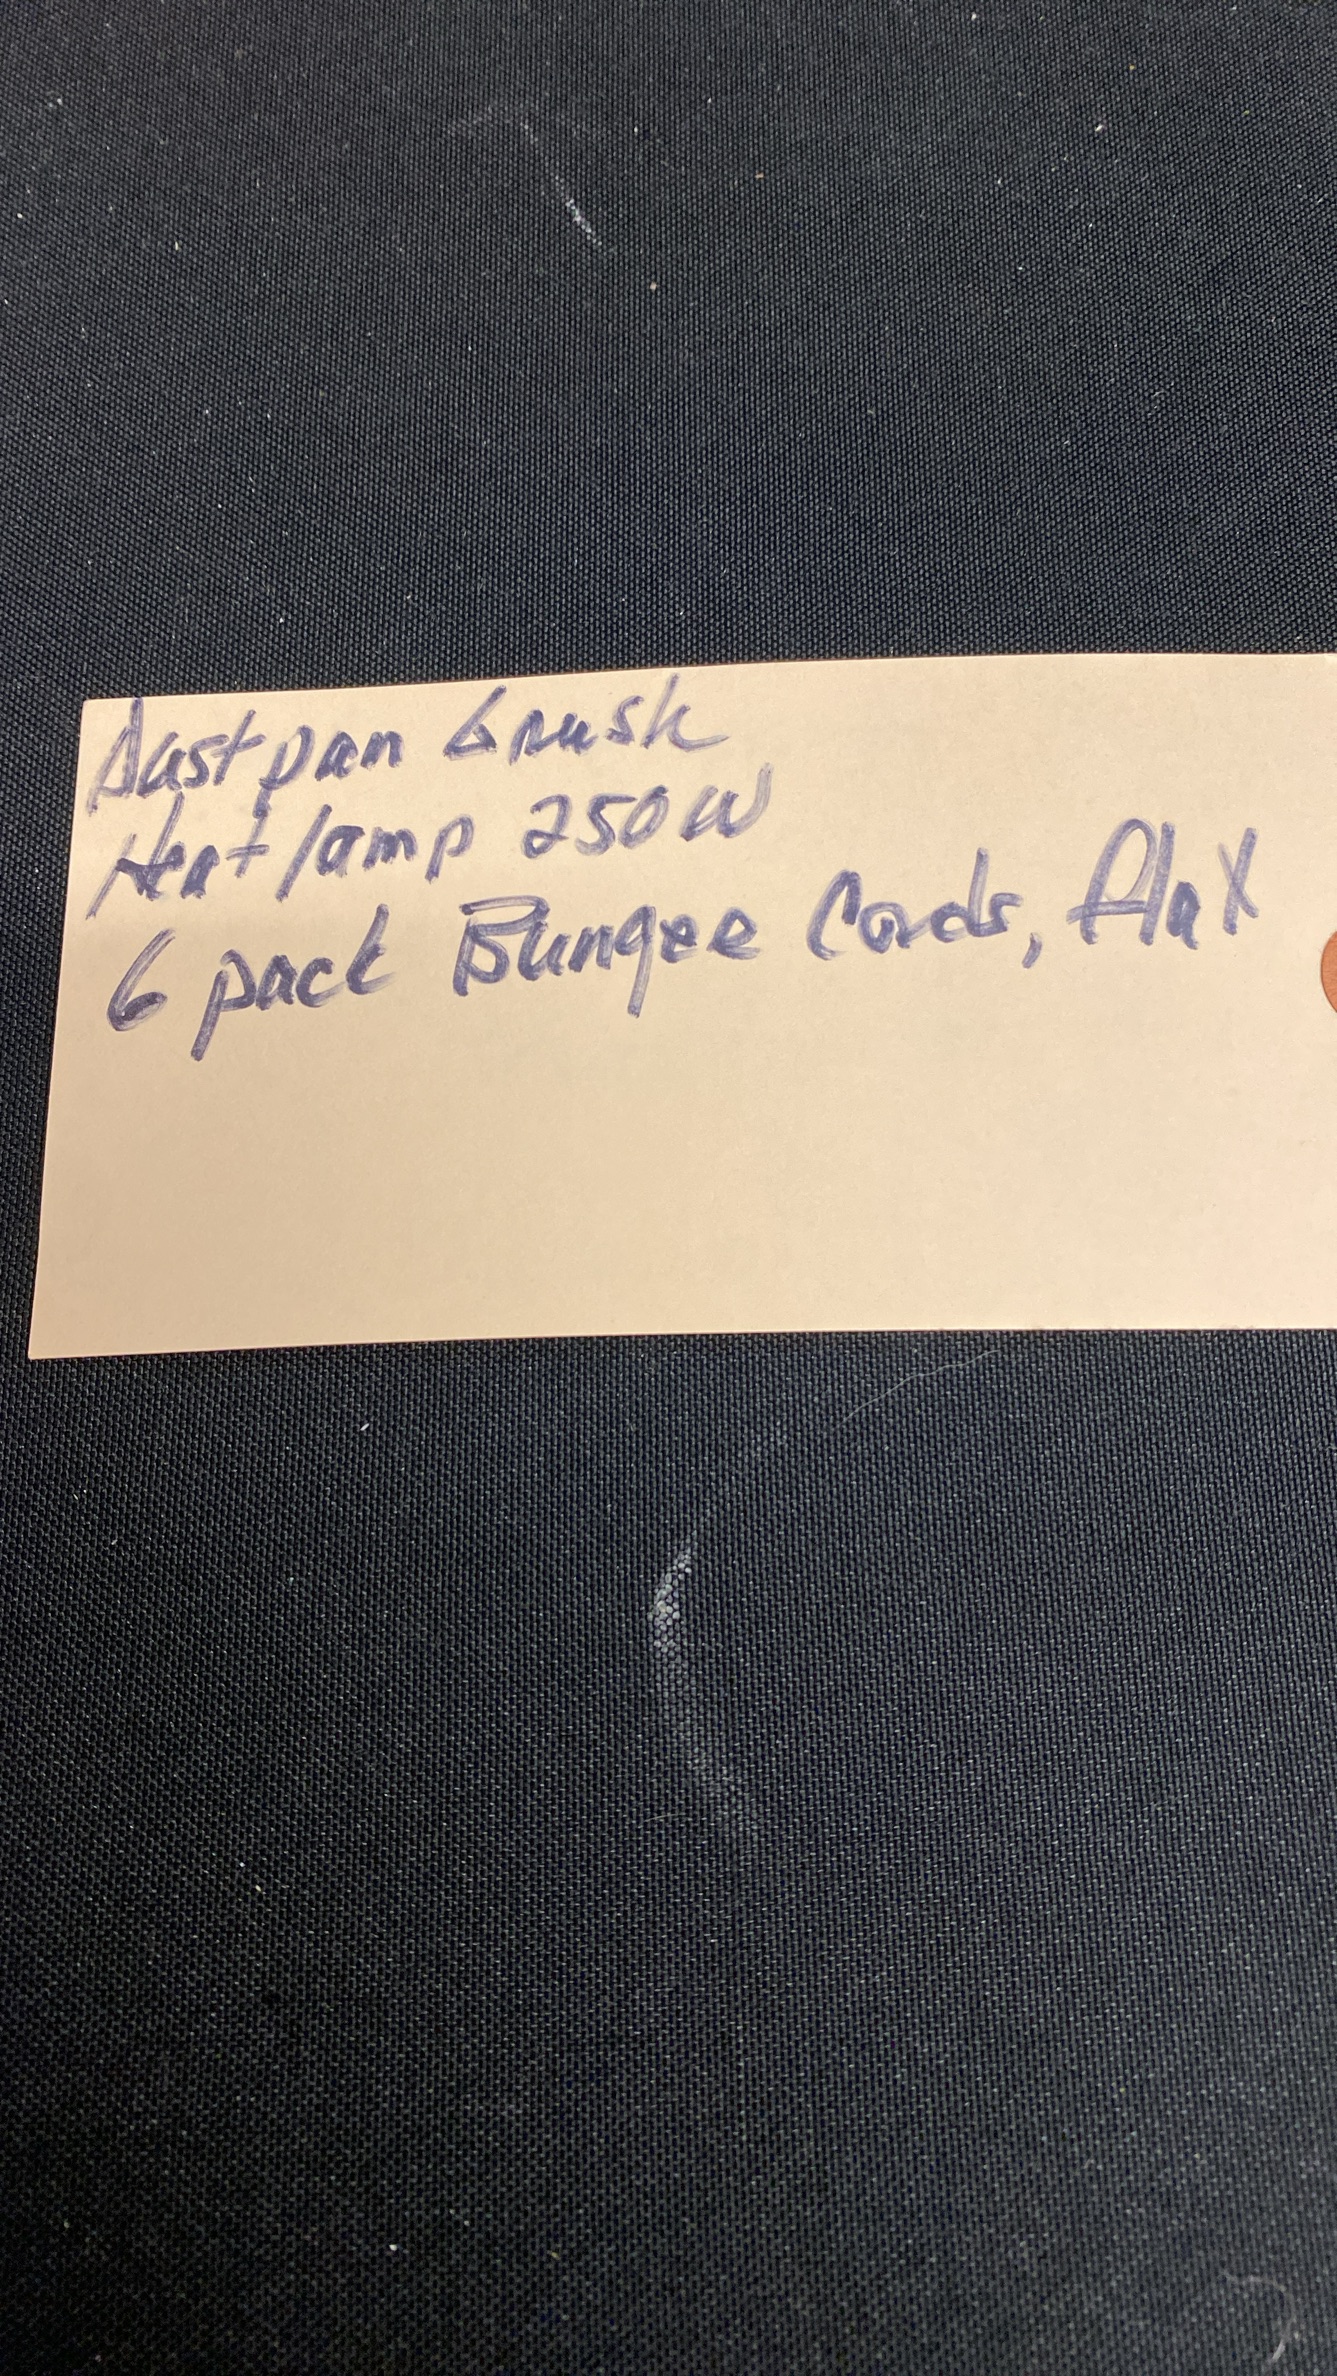 Dustpan brush
Heat lamp 250W
6 pack Bungee Cords, flux